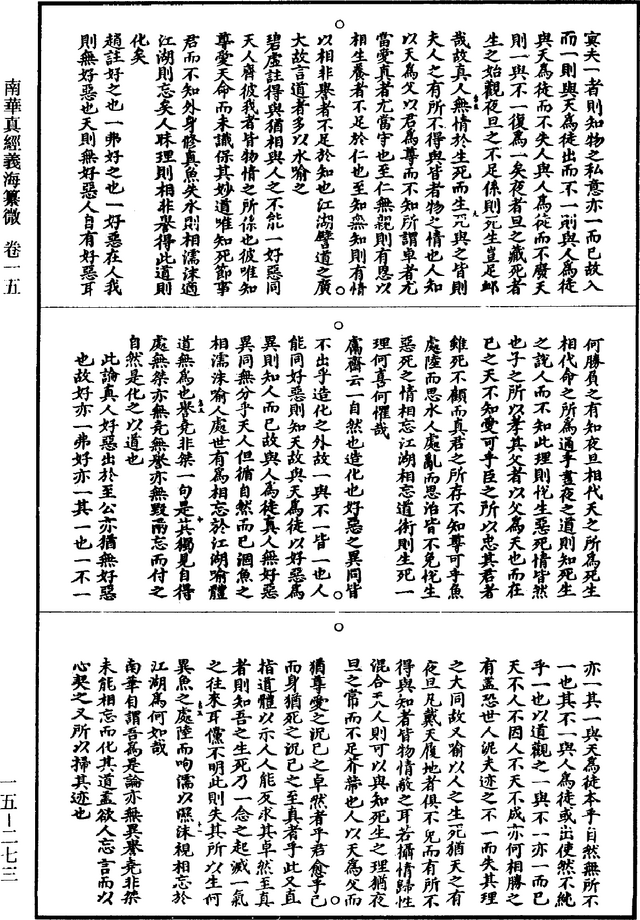 南華真經義海纂微 卷一五
一五—二七三
冥夫一者則知物之私意亦一而已故入
而一則與天為徒出而不一則與人為徒
與天為徒而不失人與人為徒而不廢天
則一與不一復為一矣夜者旦之藏死者
生之始觀夜旦之不足係則死生豈足䘏
哉故真人無情於生死而生死與之皆則
夫人之有所不得與皆者物之情也人知
以天為父以君為尊而不知所謂卓者尤
當愛真者尤當守也至仁無親則有恩以
相生養者不足於仁也至知無知則有情
以相非譽者不足於知也江湖譬道之廣
大故言道者多以水喻之
碧虛註得與猶相與人之不能一好惡同
天人齊彼我者皆物情之所係也彼唯知
尊愛天命而未識保其妙道唯知死節事
君而不知外身修真魚失水則相濡沫適
江湖則忘矣人昧理則相非譽得此道則
化矣
趙註好之也一弗好之也一好惡在人我
則無好惡也天則無好惡人自有好惡耳
何勝負之有知夜旦相代天之所為死生
相代命之所為通乎晝夜之道則知死生
之說人而不知此理則悅生惡死情皆然
也子之所以孝其父者以父為天也而在
已之天不知愛可乎臣之所以忠其君者
雖死不顧而真君之所存不知尊可乎魚
處陸而思水人處亂而思治皆不免悅生
惡死之情相忘江湖相忘道術則生死一
理何喜何懼哉
鬳齋云一自然也造化也好惡之異同皆
不出乎造化之外故一與不一皆一也人
能同好惡則知天故與天為徒以好惡為
異則知人而已故與人為徒真人無好惡
異同無分乎天人但循自然而已涸魚之
相濡沫喻人處世有為相忘於江湖喻體
道無為也譽堯非桀一句是其獨見自得
處無桀亦無堯無譽亦無毀兩忘而付之
自然是化之以道也
此論真人好惡出於至公亦猶無好惡
也故好亦一弗好亦一其一也一不一
亦一其一與天為徒本乎自然無所不
一也其不一與人為徒或出使然不純
乎一也以道觀之一與不一亦一而已
天不人不因人不天不成亦何相勝之
有蓋恐世人泥夫迹之不一而失其理
之大同故又喻以人之生死猶天之有
夜旦凡戴天履地者俱不免而有所不
得與知者皆物情蔽之耳若攝情歸性
混合天人則可以與知死生之理猶夜
旦之常而不足芥蔕也人以天為父而
猶尊愛之況己之卓然者乎君愈乎已
而身猶死之況己之至真者乎此又直
指道體以示人人能反求其卓然至真
者則知吾之生死乃一念之起滅一氣
之往來耳儻不明此則失其所以生何
異魚之處陸而呴濡以㬠沫視相忘於
江湖為何如哉
南華自謂吾為是論亦無異譽堯非桀
未能相忘而化其道蓋欲人忘言而以
心契之又所以掃其迹也